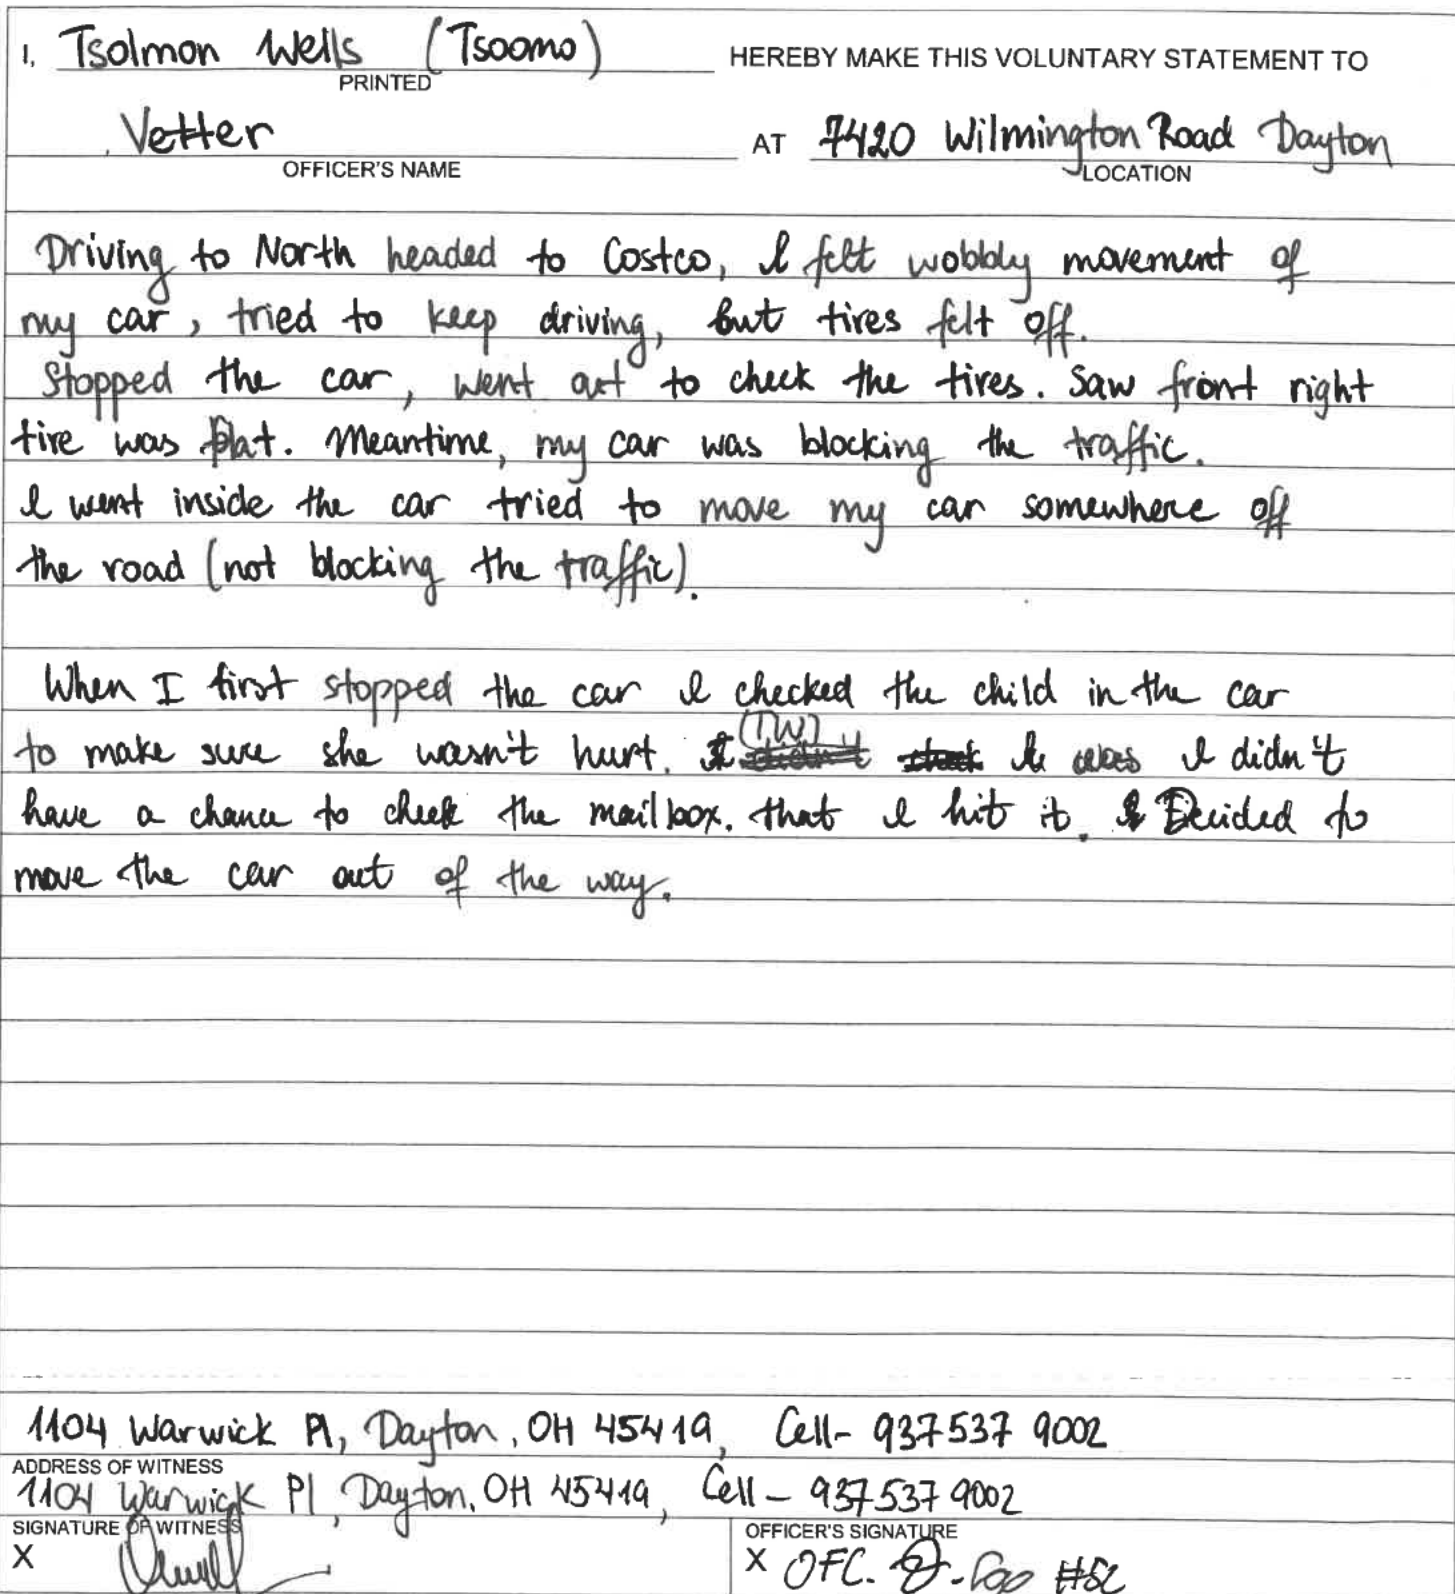 I, Tsolmon Wells (Tsoomo) HEREBY MAKE THIS VOLUNTARY STATEMENT TO
PRINTED
Vetter AT 7420 Wilmington Road Dayton
OFFICER'S NAME LOCATION
Driving to North headed to Costco, I felt wobbly movement of
my car, tried to keep driving, but tires felt off.
Stopped the car, went out to check the tires. Saw front right
tire was flat. Meantime, my car was blocking the traffic.
I went inside the car tried to move my car somewhere off
the road (not blocking the traffic).
When I first stopped the car I checked the child in the car
(TW)
to make sure she wasn't hurt. I didn't I didn't
have a chance to check the mailbox. that I hit it. Decided to
move the car out of the way.
1104 Warwick Pl, Dayton, OH 45419, Cell- 937 537 9002
ADDRESS OF WITNESS
1104 Warwick Pl, Dayton, OH 45419, Cell - 937 537 9002
SIGNATURE OF WITNESS OFFICER'S SIGNATURE
X X OFC. #52